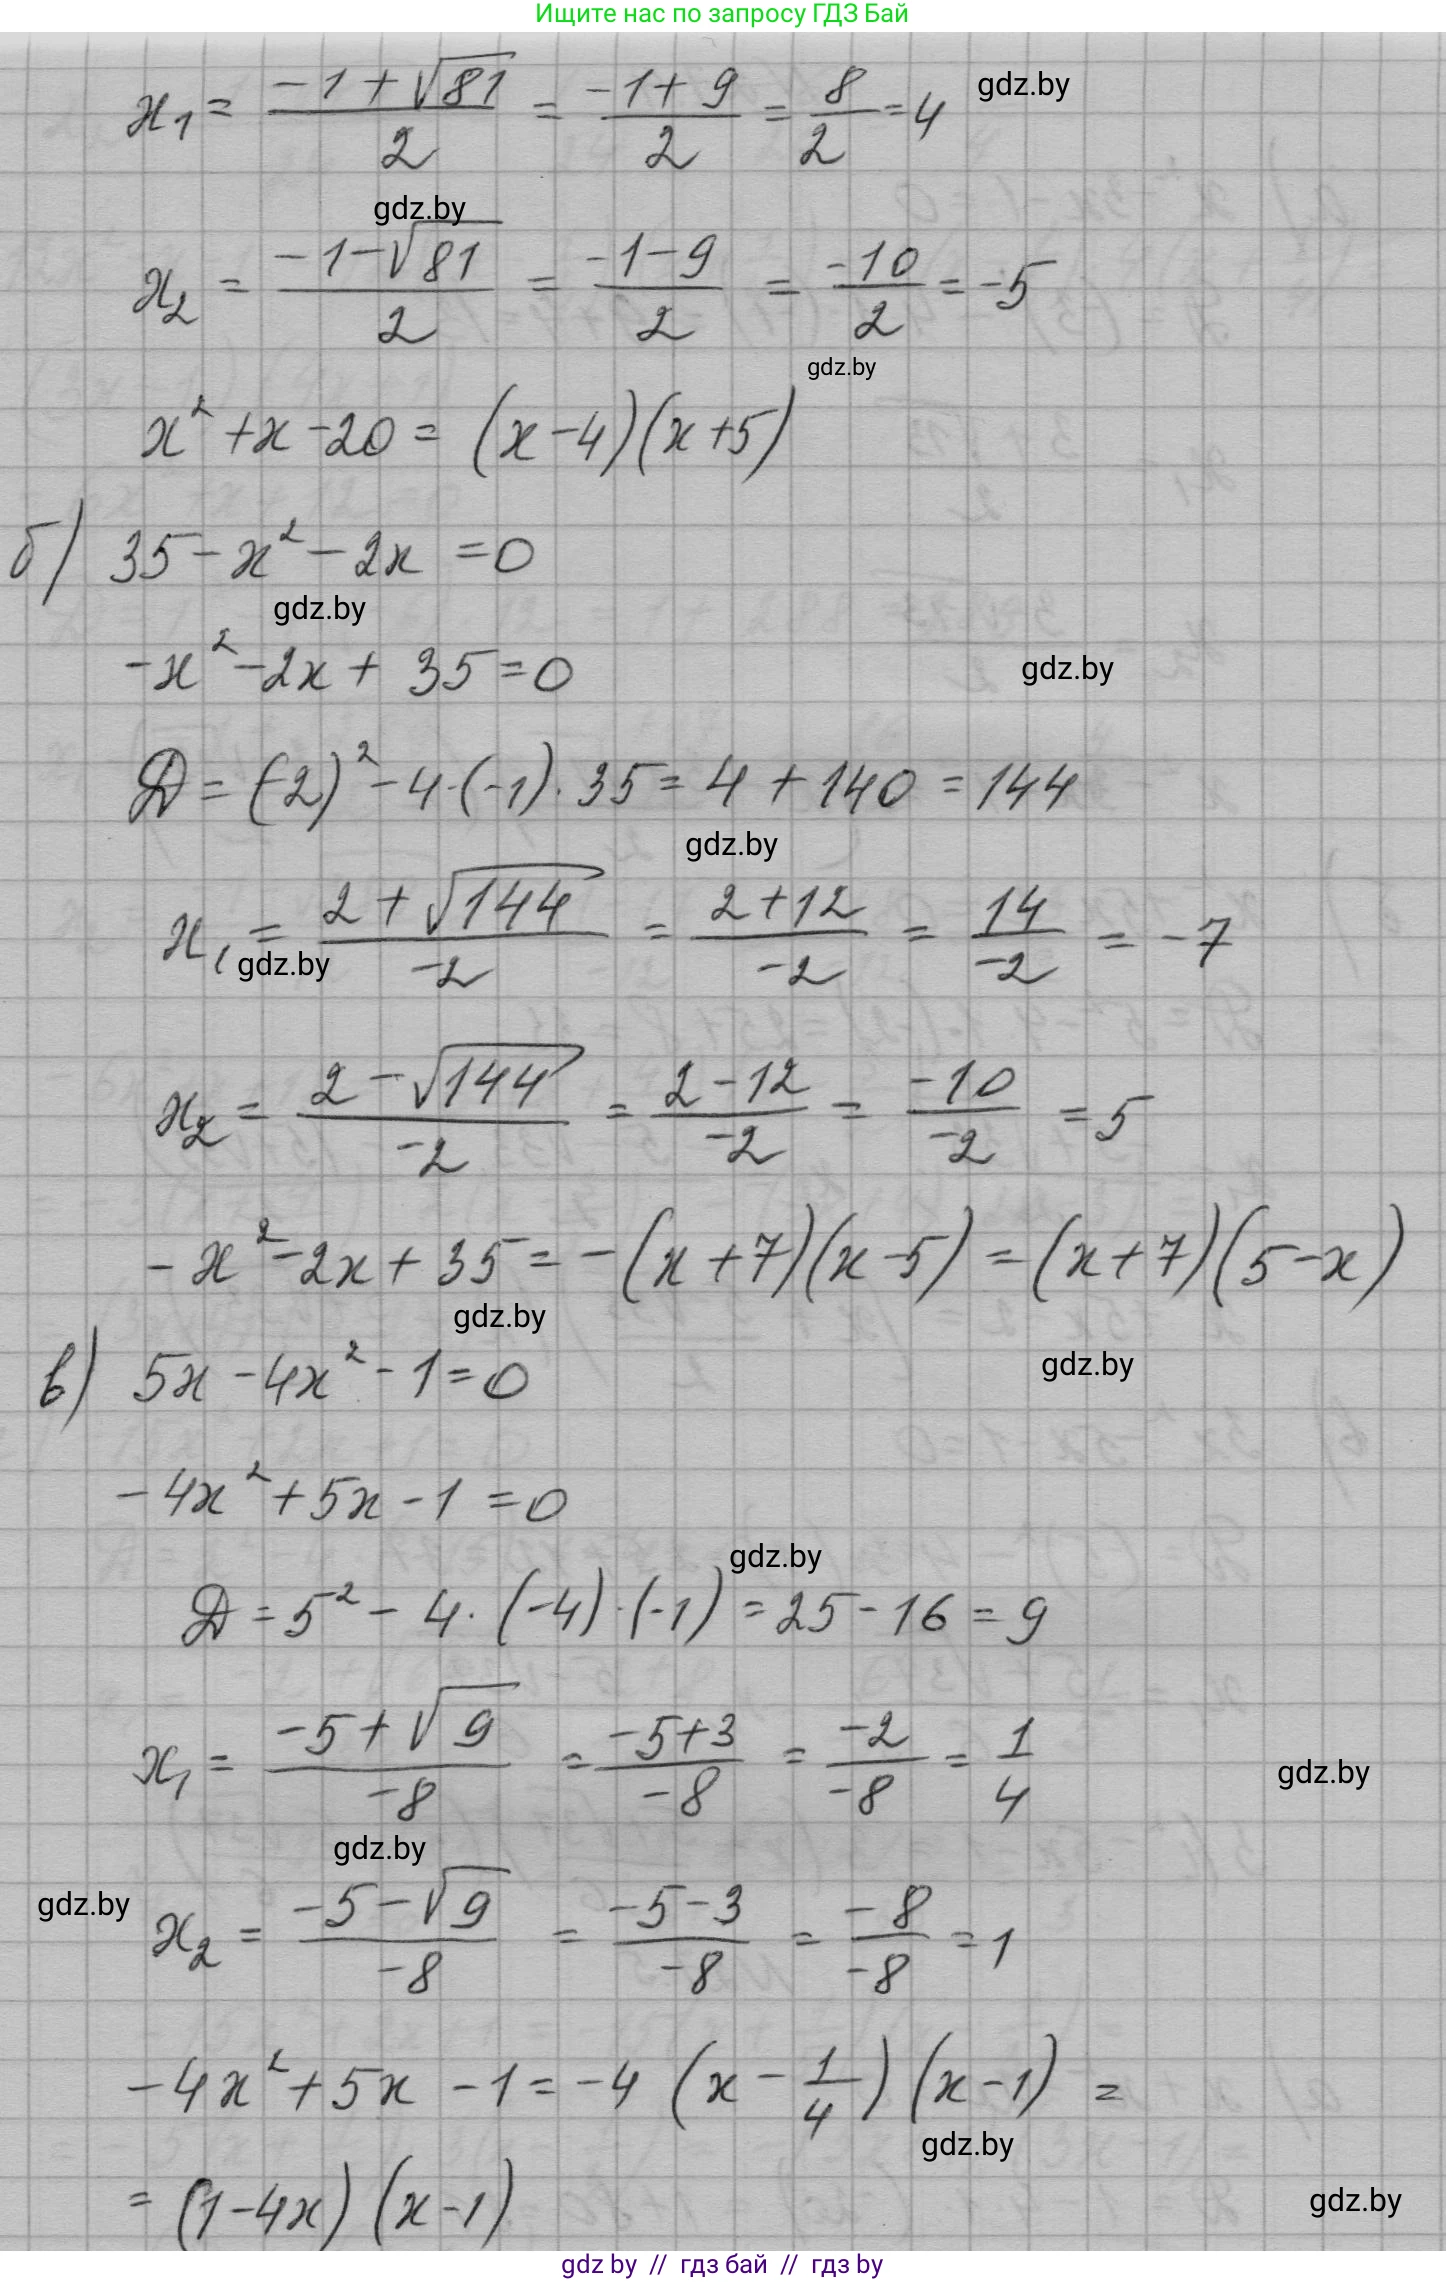 Ищите нас по запросу ГДЗ Бай
x₁ = (-1 + √81)/2 = (-1 + 9)/2 = 8/2 = 4
gdz.by
gdz.by
x₂ = (-1 - √81)/2 = (-1 - 9)/2 = -10/2 = -5
gdz.by
x² + x - 20 = (x - 4)(x + 5)
б) 35 - x² - 2x = 0
gdz.by
-x² - 2x + 35 = 0
gdz.by
Д = (-2)² - 4·(-1)·35 = 4 + 140 = 144
gdz.by
x₁ = (2 + √144)/-2 = (2 + 12)/-2 = 14/-2 = -7
gdz.by
x₂ = (2 - √144)/-2 = (2 - 12)/-2 = -10/-2 = 5
-x² - 2x + 35 = -(x + 7)(x - 5) = (x + 7)(5 - x)
gdz.by
gdz.by
в) 5x - 4x² - 1 = 0
-4x² + 5x - 1 = 0
gdz.by
Д = 5² - 4·(-4)·(-1) = 25 - 16 = 9
x₁ = (-5 + √9)/-8 = (-5 + 3)/-8 = -2/-8 = 1/4
gdz.by
gdz.by
gdz.by
x₂ = (-5 - √9)/-8 = (-5 - 3)/-8 = -8/-8 = 1
-4x² + 5x - 1 = -4(x - 1/4)(x - 1) =
gdz.by
= (1 - 4x)(x - 1)
gdz.by
gdz by // гдз бай // гдз by